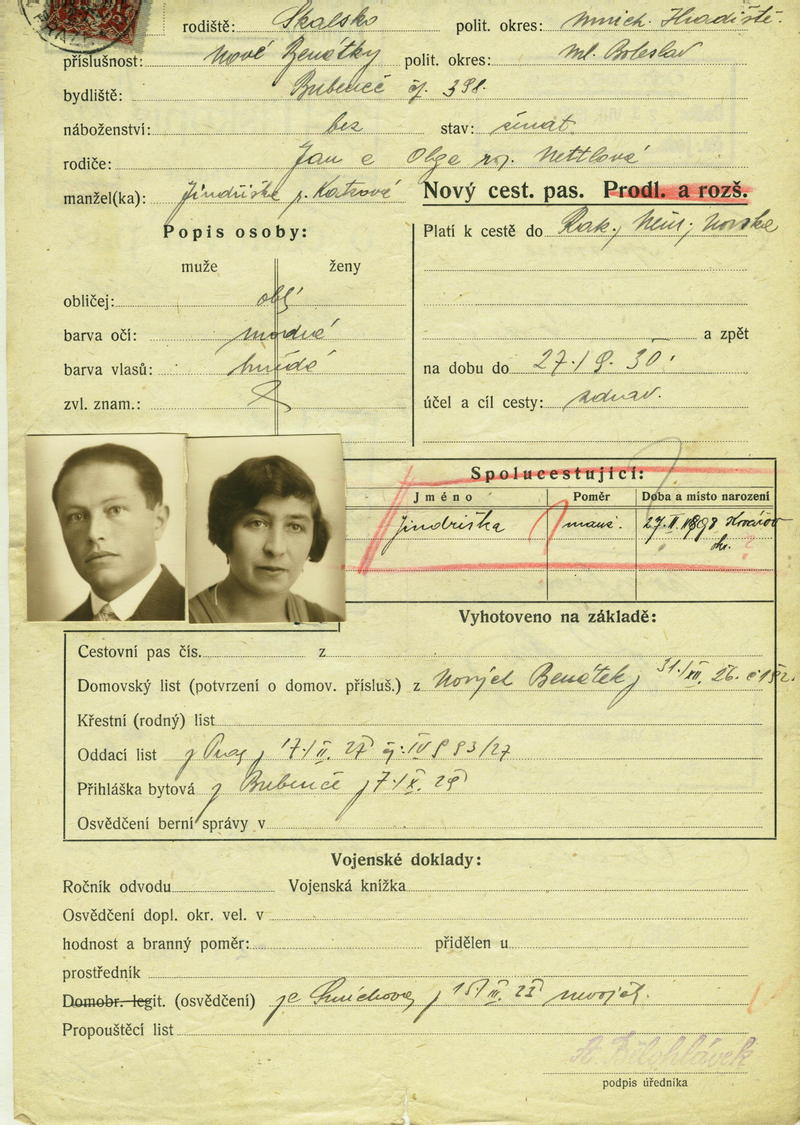 rodiště: Skalsko polit. okres: Mnich. Hradiště.
příslušnost: Nové Benátky polit. okres: Ml. Boleslav
bydliště: Bubeneč čj. 398.
náboženství: bez stav: ženat.
rodiče: Jan a Olga roz. Nettlová
manžel(ka): Jindřiška r. Katzová
Nový cest. pas. Prodl. a rozš.
Popis osoby:
muže ženy
obličej: oblý
barva očí: modré
barva vlasů: hnědé
zvl. znam.:
Platí k cestě do Rak., Něm.,
a zpět
na dobu do 27./9. 30.
účel a cíl cesty: zdrav.
Spolucestující:
Jméno Poměr Doba a místo narození
Jindřiška manž. 27. II. 1898
Vyhotoveno na základě:
Cestovní pas čís. z
Domovský list (potvrzení o domov. přísluš.) z Nových Benátek, 31./XII. 26. č
Křestní (rodný) list
Oddací list z Prag, 17./II. 27 čj. IV 993/27
Přihláška bytová z Bubenče, 7./X. 29
Osvědčení berní správy v
Vojenské doklady:
Ročník odvodu Vojenská knížka
Osvědčení dopl. okr. vel. v
hodnost a branný poměr: přidělen u
prostředník
Domobr. legit. (osvědčení) ze Smíchova,
Propouštěcí list
A. Bělohlávek
podpis úředníka